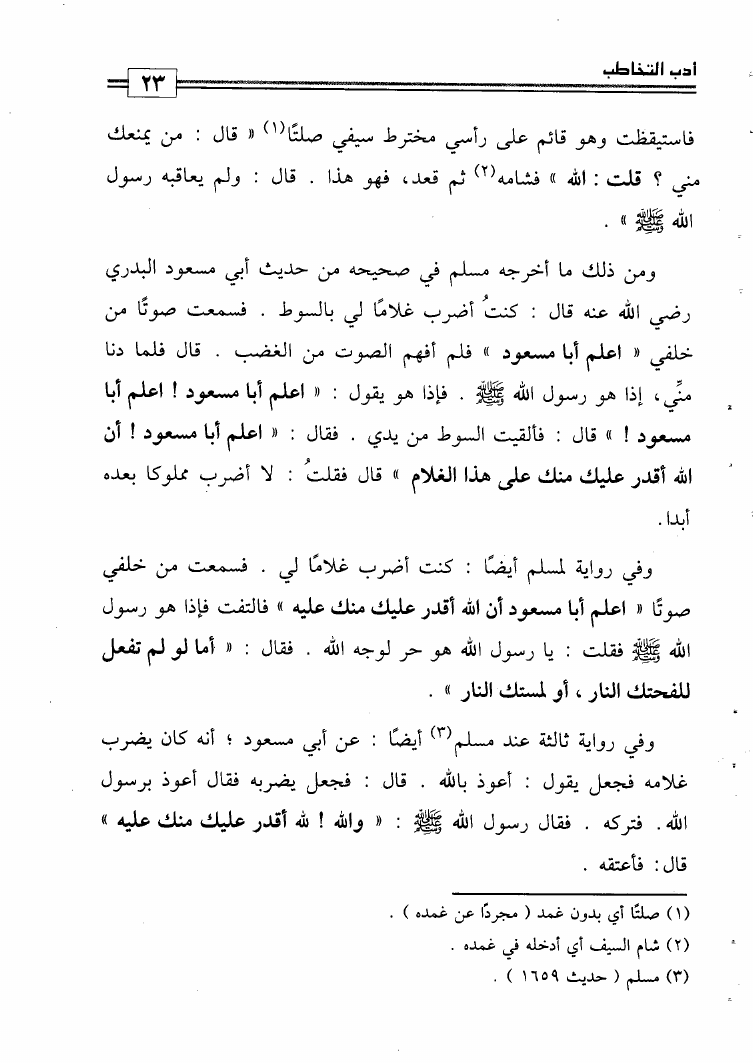 أدب التخاطب
٢٣
فاستيقظت وهو قائم على رأسي مخترط سيفي صلتًا(١) « قال : من يمنعك
مني ؟ قلت : الله » فشامه(٢) ثم قعد، فهو هذا . قال : ولم يعاقبه رسول
الله ﷺ » .
ومن ذلك ما أخرجه مسلم في صحيحه من حديث أبي مسعود البدري
رضي الله عنه قال : كنتُ أضرب غلامًا لي بالسوط . فسمعت صوتًا من
خلفي « اعلم أبا مسعود » فلم أفهم الصوت من الغضب . قال فلما دنا
منِّي، إذا هو رسول الله ﷺ . فإذا هو يقول : « اعلم أبا مسعود ! اعلم أبا
مسعود ! » قال : فألقيت السوط من يدي . فقال : « اعلم أبا مسعود ! أن
الله أقدر عليك منك على هذا الغلام » قال فقلتُ : لا أضرب مملوكا بعده
أبدا .
وفي رواية لمسلم أيضًا : كنت أضرب غلامًا لي . فسمعت من خلفي
صوتًا « اعلم أبا مسعود أن الله أقدر عليك منك عليه » فالتفت فإذا هو رسول
الله ﷺ فقلت : يا رسول الله هو حر لوجه الله . فقال : « أما لو لم تفعل
للفحتك النار ، أو لمستك النار » .
وفي رواية ثالثة عند مسلم(٣) أيضًا : عن أبي مسعود ؛ أنه كان يضرب
غلامه فجعل يقول : أعوذ بالله . قال : فجعل يضربه فقال أعوذ برسول
الله. فتركه . فقال رسول الله ﷺ : « والله ! لله أقدر عليك منك عليه »
قال : فأعتقه .
(١) صلتًا أي بدون غمد ( مجردًا عن غمده ) .
(٢) شام السيف أي أدخله في غمده .
(٣) مسلم ( حديث ١٦٥٩ ) .